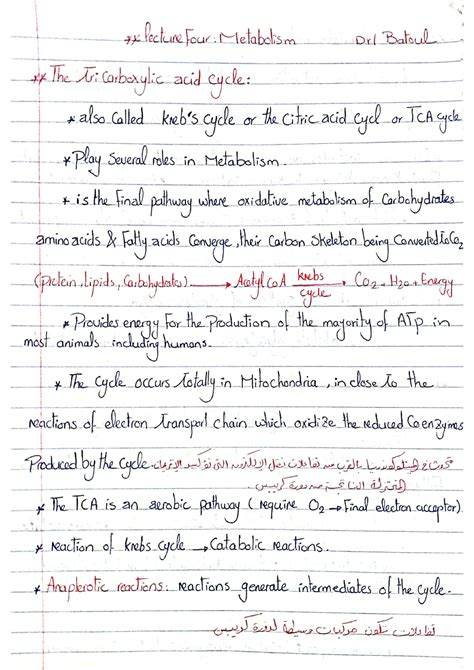 ** lecture Four: Metabolism Dr/ Batoul
** The tricarboxylic acid cycle:
* also called kreb's cycle or the citric acid cycl or TCA cycle
* Play several roles in Metabolism.
* is the Final pathway where oxidative metabolism of Carbohydrates
amino acids & Fatty acids Converge, their Carbon skeleton being Converted to Co2
(protein, lipids, Carbohydrates) → Acetyl CoA krebs cycle → CO2 + H2O + Energy
* Provides energy For the Production of the majority of ATp in
most animals including humans.
* The cycle occurs totally in Mitochondria, in close to the
reactions of electron transport chain which oxidize the reduced Coenzymes
Produced by the cycle. تحدث في الميتوكوندريا بالقرب من تفاعلات نقل الإلكترون التي تؤكسد الإنزيمات
المختزلة الناتجة من دورة كريبس
* The TCA is an aerobic pathway (require O2 → Final electron acceptor)
* reaction of krebs cycle → Catabolic reactions.
* Anaplerotic reactions: reactions generate intermediates of the cycle.
تفاعلات تكون مركبات وسيطة لدورة كريبس